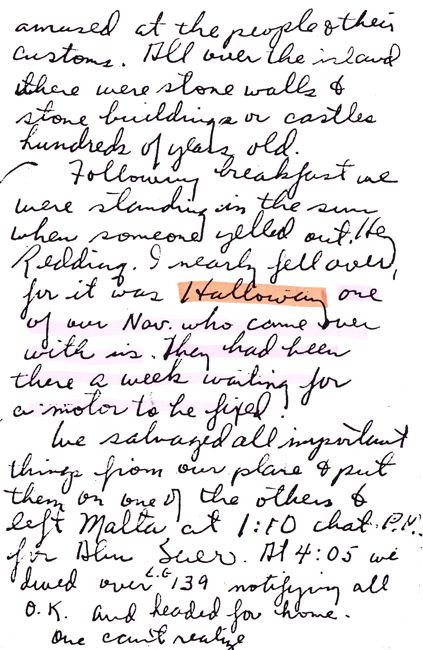 amused at the people & their
customs. All over the island
there were stone walls &
stone buildings or castles
hundreds of years old.
Following breakfast we
were standing in the sun
when someone yelled out. Hey
Redding. I nearly fell over,
for it was Halloway one
of our Nav. who came over
with us. They had been
there a week waiting for
a motor to be fixed.
We salvaged all important
things from our plane & put
them on one of the others &
left Malta at 1:10 that P.M.
for Alin Suer. At 4:05 we
dived over L.G 139 notifying all
O.K. and headed for home.
One can't realize